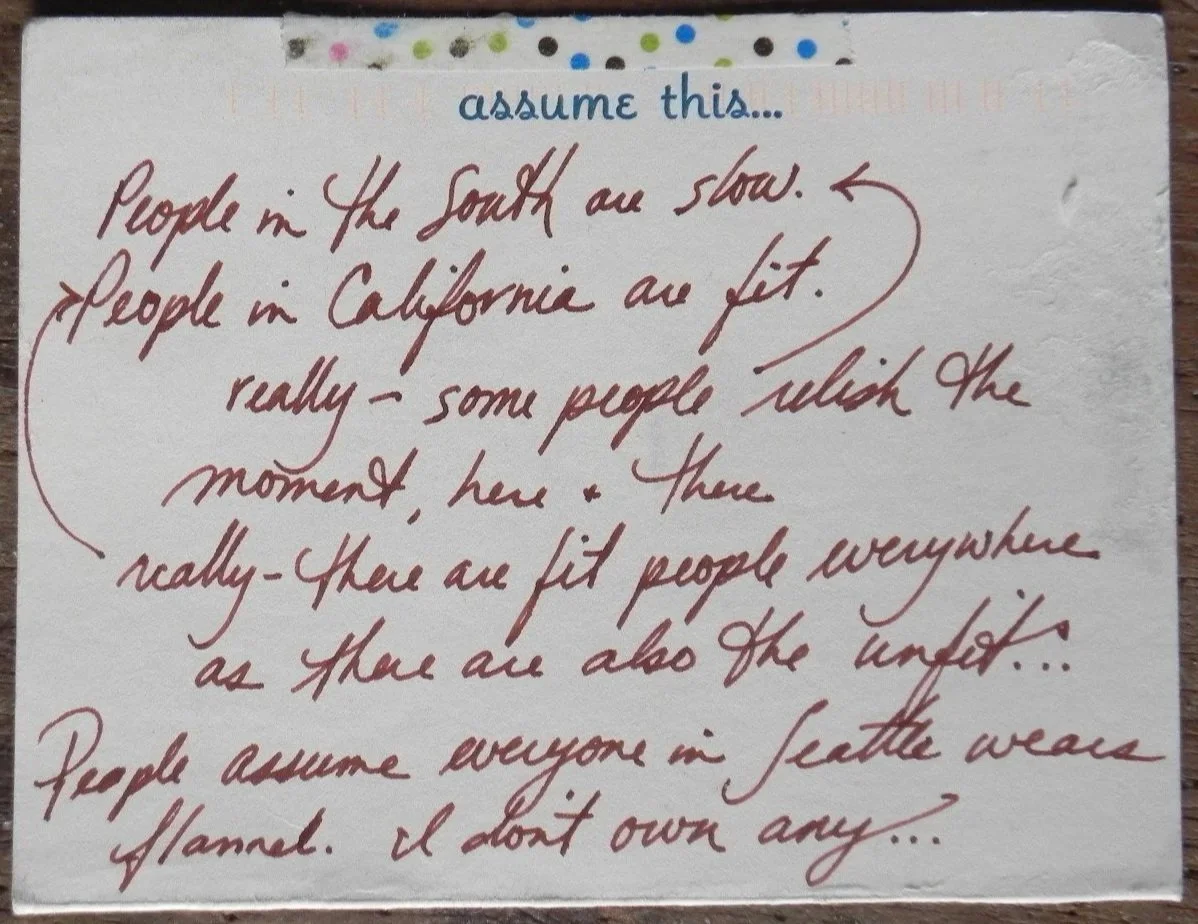 assume this...
People in the South are slow.
People in California are fit.
really - some people relish the
moment, here + there
really - there are fit people everywhere
as there are also the unfit...
People assume everyone in Seattle wears
flannel. I don't own any...